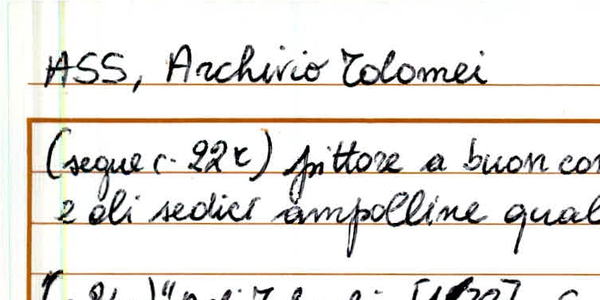 ASS, Archivio Tolomei
(segue c. 22r) pittore a buon con
e di sedici ampolline qual